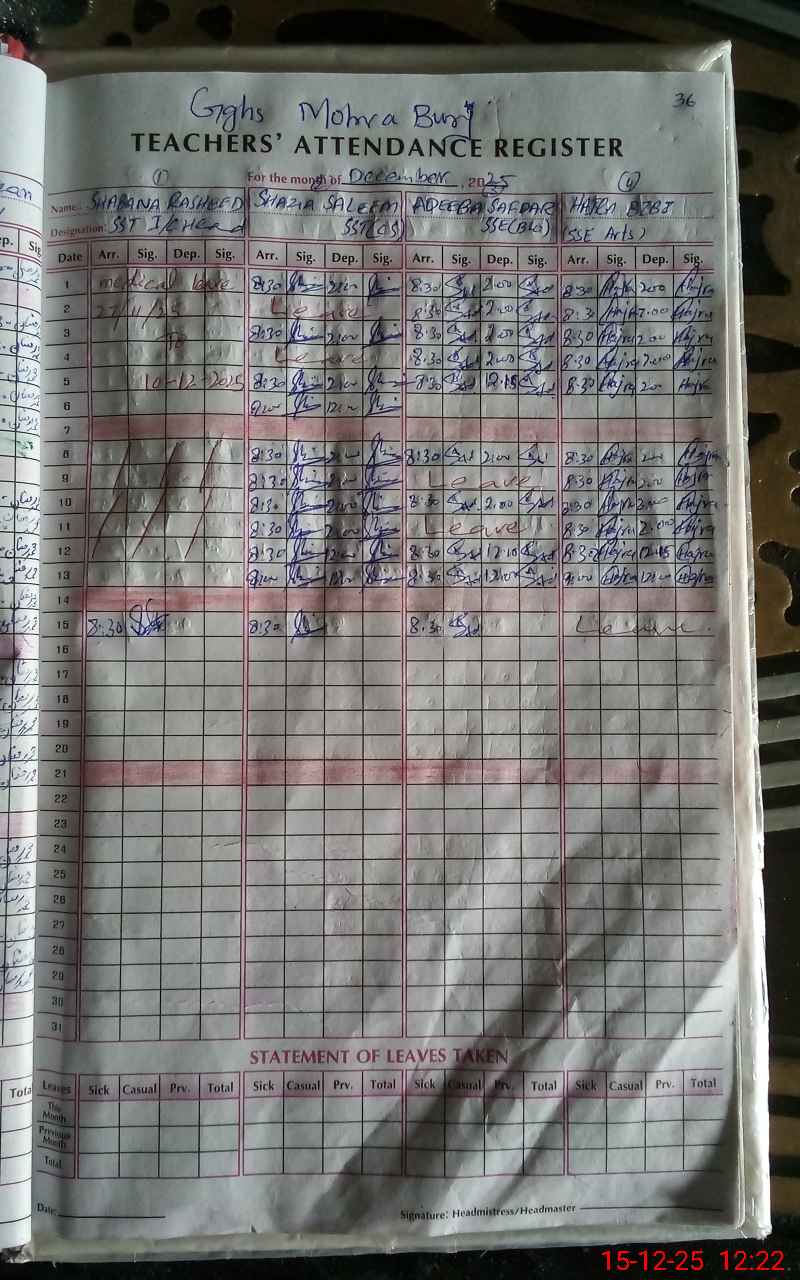 36
Gghs Mohra Burj
TEACHERS' ATTENDANCE REGISTER
(1) For the month of December, 2025 (4)
Name.. SHABANA RASHEED SHAZIA SALEEM ADEEBA SAFDAR HAJRA BIBI
Designation: SST I/C Head SST(CS) SSE(Bio) (SSE Arts)
Date Arr. Sig. Dep. Sig. Arr. Sig. Dep. Sig. Arr. Sig. Dep. Sig. Arr. Sig. Dep. Sig.
1 medical 8:30 2:00 8:30 2:00 8:30 Hajra 2:00 Hajra
2 27/11/25 Leave 8:30 2:00 8:30 Hajra 2:00 Hajra
3 To 8:30 2:00 8:30 2:00 8:30 Hajra 2:00 Hajra
4 Leave 8:30 2:00 8:30 Hajra 2:00 Hajra
5 10-12-2025 8:30 2:00 8:30 12:15 8:30 Hajra 2:00 Hajra
6 9:00 12:00
7
8 8:30 2:00 8:30 2:00 8:30 Hajra 2:00 Hajra
9 8:30 2:00 Leave 8:30 Hajra 2:00 Hajra
10 8:30 2:00 8:30 2:00 8:30 Hajra 2:00 Hajra
11 8:30 2:00 Leave 8:30 Hajra 2:00 Hajra
12 8:30 12:00 8:30 12:10 8:30 Hajra 12:15 Hajra
13 9:00 12:00 8:30 12:00 9:00 Hajra 12:00 Hajra
14
15 8:30 8:30 8:30 Leave
16
17
18
19
20
21
22
23
24
25
26
27
28
29
30
31
STATEMENT OF LEAVES TAKEN
Leaves Sick Casual Prv. Total Sick Casual Prv. Total Sick Casual Prv. Total Sick Casual Prv. Total
This Month
Previous Month
Total
Date: Signature: Headmistress/Headmaster
Total
15-12-25 12:22